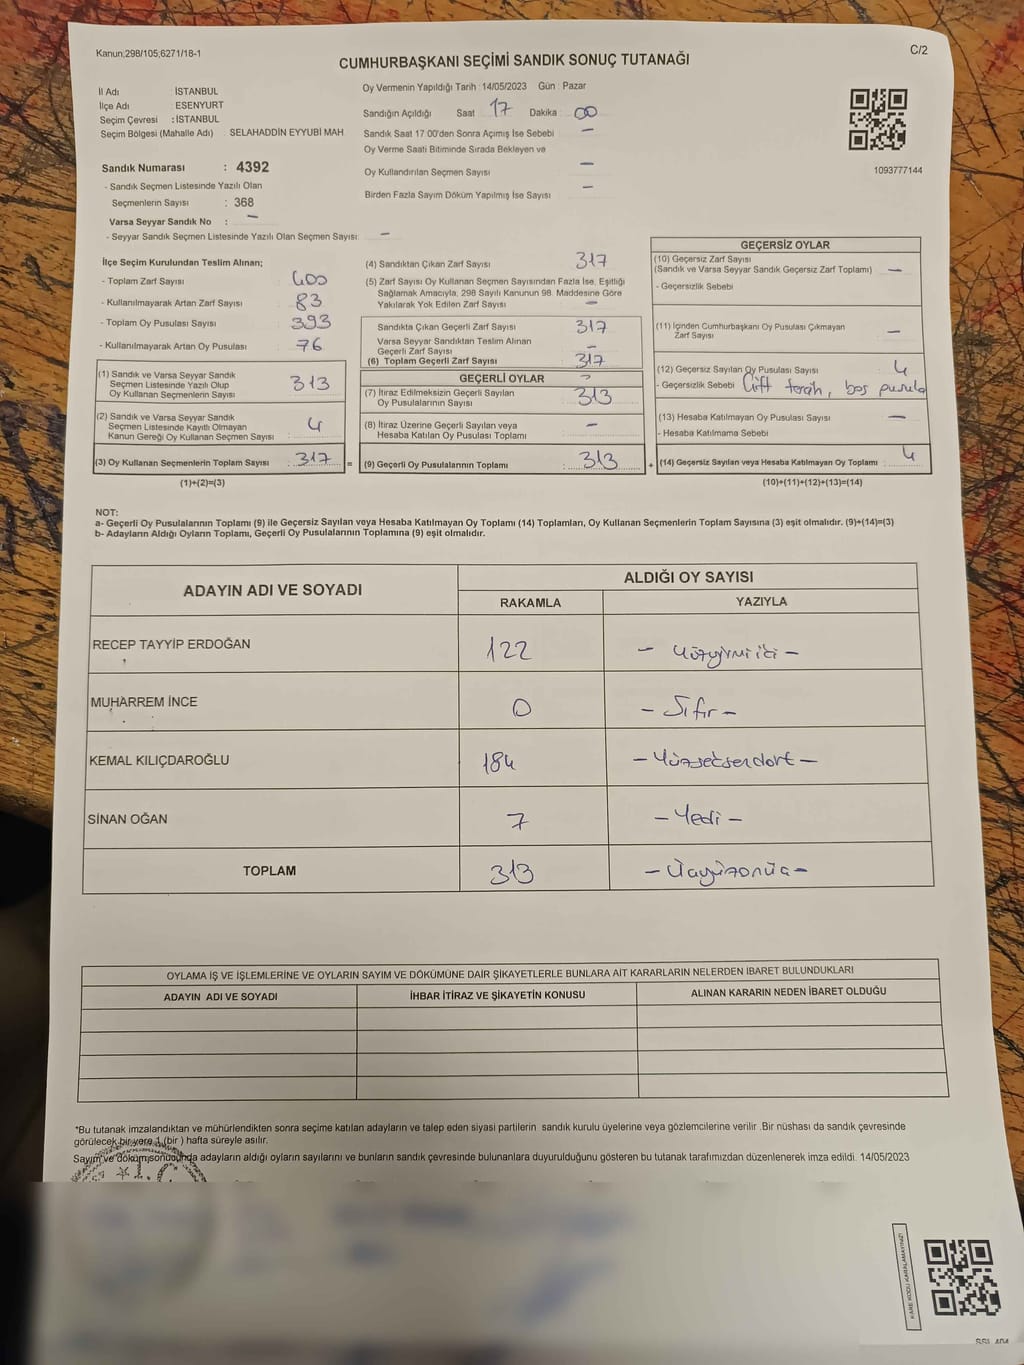 Kanun;298/105;6271/18-1
C/2
CUMHURBAŞKANI SEÇİMİ SANDIK SONUÇ TUTANAĞI
İl Adı : İSTANBUL
İlçe Adı : ESENYURT
Seçim Çevresi : İSTANBUL
Seçim Bölgesi (Mahalle Adı) : SELAHADDİN EYYUBİ MAH
Sandık Numarası : 4392
- Sandık Seçmen Listesinde Yazılı Olan
Seçmenlerin Sayısı : 368
Varsa Seyyar Sandık No : –
- Seyyar Sandık Seçmen Listesinde Yazılı Olan Seçmen Sayısı: –
Oy Vermenin Yapıldığı Tarih : 14/05/2023 Gün : Pazar
Sandığın Açıldığı Saat 17 Dakika : 00
Sandık Saat 17 00'den Sonra Açımış İse Sebebi –
Oy Verme Saati Bitiminde Sırada Bekleyen ve
Oy Kullandırılan Seçmen Sayısı –
Birden Fazla Sayım Döküm Yapılmış İse Sayısı –
1093777144
İlçe Seçim Kurulundan Teslim Alınan;
- Toplam Zarf Sayısı : 400
- Kullanılmayarak Artan Zarf Sayısı : 83
- Toplam Oy Pusulası Sayısı : 393
- Kullanılmayarak Artan Oy Pusulası : 76
(1) Sandık ve Varsa Seyyar Sandık
Seçmen Listesinde Yazılı Olup
Oy Kullanan Seçmenlerin Sayısı : 313
(2) Sandık ve Varsa Seyyar Sandık
Seçmen Listesinde Kayıtlı Olmayan
Kanun Gereği Oy Kullanan Seçmen Sayısı : 4
(3) Oy Kullanan Seçmenlerin Toplam Sayısı : 317 =
(1)+(2)=(3)
(4) Sandıktan Çıkan Zarf Sayısı 317
(5) Zarf Sayısı Oy Kullanan Seçmen Sayısından Fazla İse, Eşitliği
Sağlamak Amacıyla, 298 Sayılı Kanunun 98. Maddesine Göre
Yakılarak Yok Edilen Zarf Sayısı –
Sandıkta Çıkan Geçerli Zarf Sayısı 317
Varsa Seyyar Sandıktan Teslim Alınan
Geçerli Zarf Sayısı –
(6) Toplam Geçerli Zarf Sayısı 317
GEÇERLİ OYLAR
(7) İtiraz Edilmeksizin Geçerli Sayılan
Oy Pusulalarının Sayısı 313
(8) İtiraz Üzerine Geçerli Sayılan veya
Hesaba Katılan Oy Pusulası Toplamı –
(9) Geçerli Oy Pusulalarının Toplamı : 313 +
GEÇERSİZ OYLAR
(10) Geçersiz Zarf Sayısı
(Sandık ve Varsa Seyyar Sandık Geçersiz Zarf Toplamı) –
- Geçersizlik Sebebi
(11) İçinden Cumhurbaşkanı Oy Pusulası Çıkmayan
Zarf Sayısı –
(12) Geçersiz Sayılan Oy Pusulası Sayısı 4
- Geçersizlik Sebebi Çift tercih, boş pusula
(13) Hesaba Katılmayan Oy Pusulası Sayısı –
- Hesaba Katılmama Sebebi
(14) Geçersiz Sayılan veya Hesaba Katılmayan Oy Toplamı 4
(10)+(11)+(12)+(13)=(14)
NOT:
a- Geçerli Oy Pusulalarının Toplamı (9) ile Geçersiz Sayılan veya Hesaba Katılmayan Oy Toplamı (14) Toplamları, Oy Kullanan Seçmenlerin Toplam Sayısına (3) eşit olmalıdır. (9)+(14)=(3)
b- Adayların Aldığı Oyların Toplamı, Geçerli Oy Pusulalarının Toplamına (9) eşit olmalıdır.
ADAYIN ADI VE SOYADI
ALDIĞI OY SAYISI
RAKAMLA YAZIYLA
RECEP TAYYİP ERDOĞAN 122 – Yüzyirmiiki –
MUHARREM İNCE 0 – Sıfır –
KEMAL KILIÇDAROĞLU 184 – Yüzseksendört –
SİNAN OĞAN 7 – Yedi –
TOPLAM 313 – Üçyüzonüç –
OYLAMA İŞ VE İŞLEMLERİNE VE OYLARIN SAYIM VE DÖKÜMÜNE DAİR ŞİKAYETLERLE BUNLARA AİT KARARLARIN NELERDEN İBARET BULUNDUKLARI
ADAYIN ADI VE SOYADI İHBAR İTİRAZ VE ŞİKAYETİN KONUSU ALINAN KARARIN NEDEN İBARET OLDUĞU
*Bu tutanak imzalandıktan ve mühürlendikten sonra seçime katılan adayların ve talep eden siyasi partilerin sandık kurulu üyelerine veya gözlemcilerine verilir .Bir nüshası da sandık çevresinde
görülecek bir yere 1 (bir ) hafta süreyle asılır.
Sayım ve döküm sonucunda adayların aldığı oyların sayılarını ve bunların sandık çevresinde bulunanlara duyurulduğunu gösteren bu tutanak tarafımızdan düzenlenerek imza edildi. 14/05/2023
T.C
KARE KODU KARALAMAYINIZ!